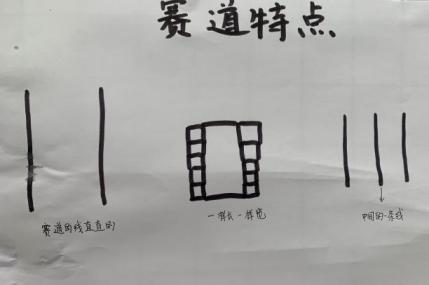 赛道特点
赛道的线直直的
一样长一样宽
中间的一条线